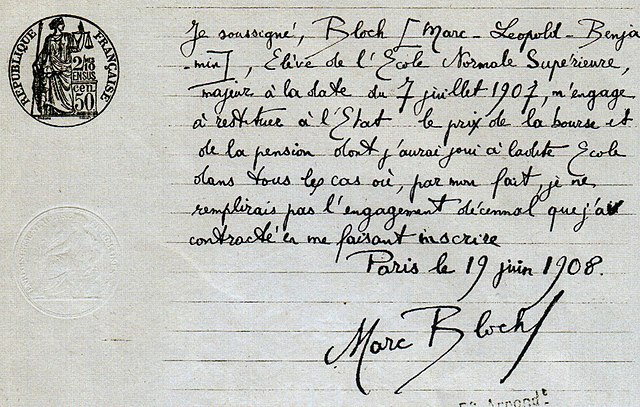 RÉPUBLIQUE FRANÇAISE
2/10 EN SUS
50 cen
Je soussigné, Bloch [Marc-Leopold-Benja
-min], Elève de l'Ecole Normale Supérieure,
majeur à la date du 7 juillet 1907, m'engage
à restituer à l'Etat le prix de la bourse et
de la pension dont j'aurai joui à ladite Ecole
dans tous les cas où, par mon fait, je ne
remplirais pas l'engagement décennal que j'ai
contracté en me faisant inscrire
Paris le 19 juin 1908.
Marc Bloch
Arrondt